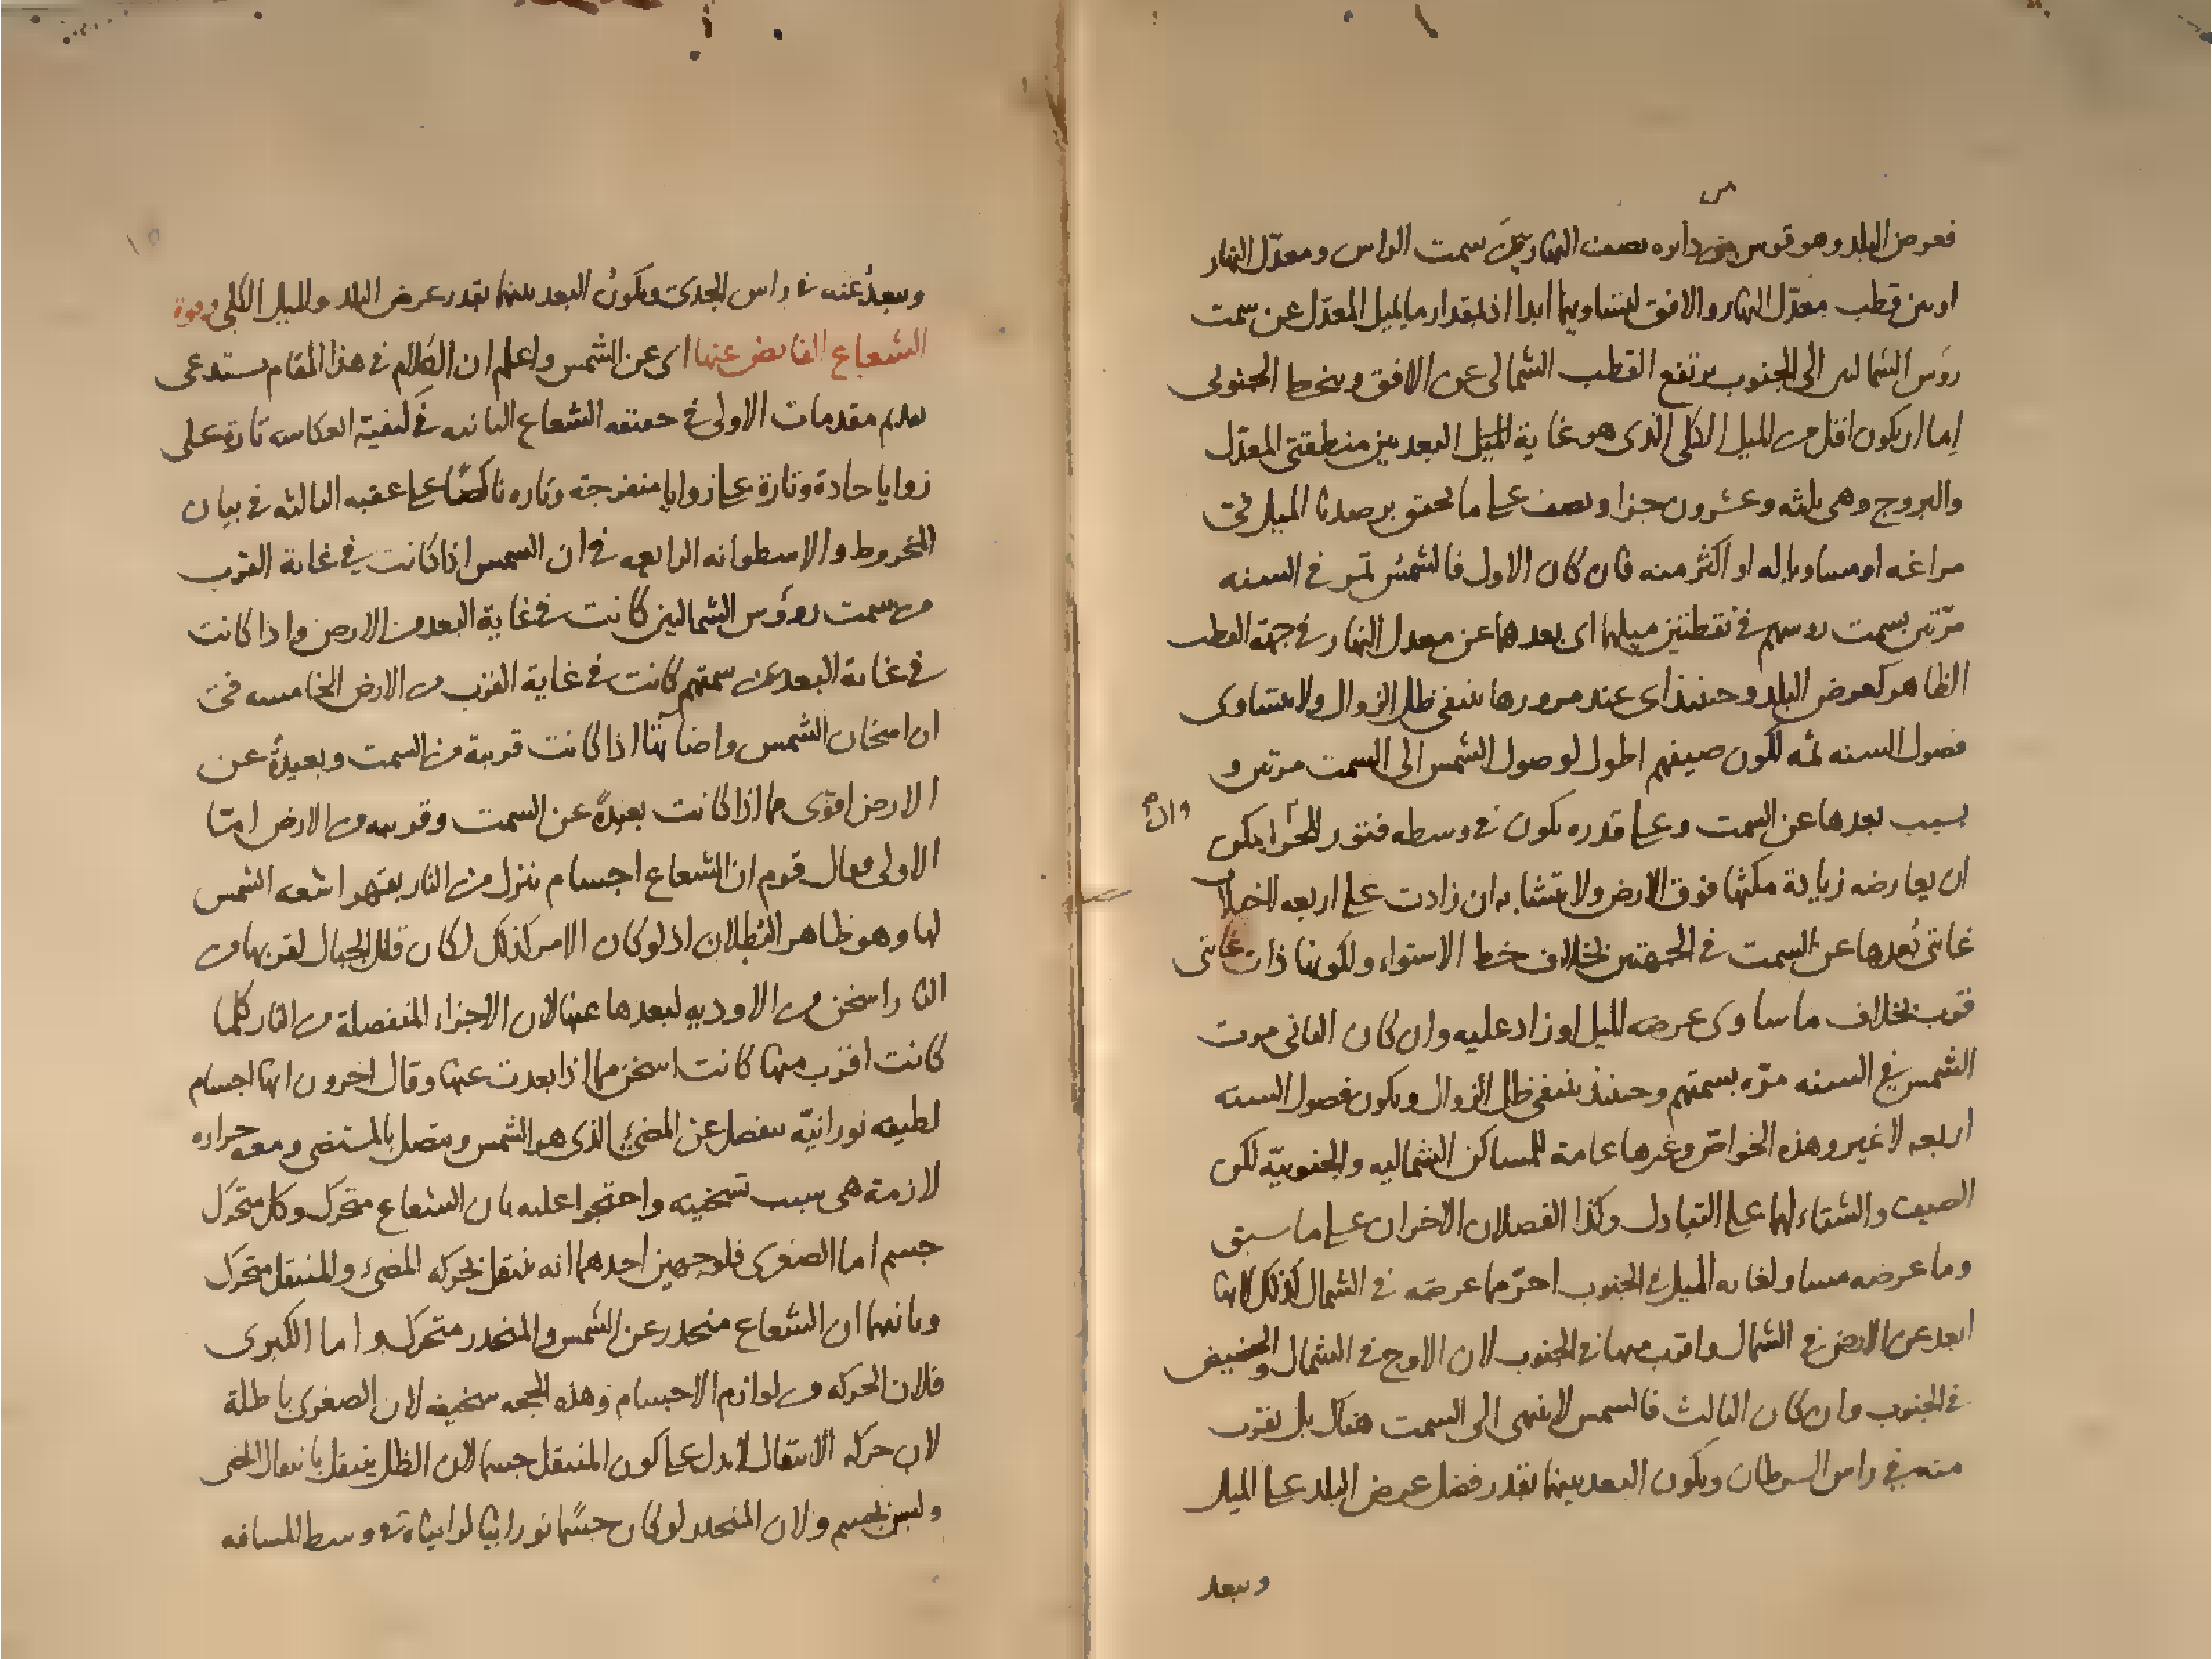 فعرض البلد وهو قوس من دائره نصف النهار بين سمت الراس ومعدّل النهار
او بين قطب معدّل النهار والافق لتساويهما ابدا اذ بمقدار ما يميل المعدّل عن سمت
روس الشماليين الى الجنوب يرتفع القطب الشمالى عن الافق وينحط الجنوبى
إما ان يكون اقل من الميل الكلى الذى هو غاية الميل البعد بين منطقتى المعدّل
والبروج وهى ثلثه وعشرون جزا ونصف على ما تحقق برصدنا الميل فى
مراغه او مساويا له او اكثر منه فان كان الاول فالشمس تمر فى السنه
مرّتين بسمت روسهم فى نقطتين ميلهما اى بعدهما عن معدل النهار فى جهة القطب
الظاهر كعرض البلد وحينئذ اى عند مرورها ينتفى ظل الزوال ولا يتساوى
فصول السنه ثمه لكون صيفهم اطول لوصول الشمس الى السمت مرتين و
بسبب بعدها عن السمت وعلى قدره يكون فى وسطه فتور للحرّ ايمكن
ان يعارضه زيادة مكثها فوق الارض ولا يتشابه ان زادت على اربعه لاختلاف
غايتى بُعدها عن السمت فى الجهتين بخلاف خط الاستواء ولكونها ذات غايتى
قرب بخلاف ما ساوى عرضه الميل او زاد عليه وان كان الثانى مرت
الشمس فى السنه مرّه بسمتهم وحينئذ ينتفى ظل الزوال ويكون فصول السنه
اربعه لا غير وهذه الخواصّ وغيرها عامة للمساكن الشماليه والجنوبيّه لكن
الصيف والشتاء لهما على التبادل وكذا الفصلان الآخران على ما سبق
وما عرضه مساو لغايه الميل فى الجنوب احرّ مما عرضه فى الشمال كذلك لانها
ابعد عن الارض فى الشمال واقرب منها فى الجنوب لان الاوج فى الشمال والحضيض
فى الجنوب وان كان الثالث فالشمس لا ينتهى الى السمت هناك بل يقرب
منه فى راس السرطان ويكون البعد بينهما بقدر فضل عرض البلد على الميل
ويبعد
ويبعدُ عنه فى راس الجدى ويكونُ البعد بينهما بقدر عرض البلد والميل الكلى وقوة
الشعاع الفايض عنها اى عن الشمس واعلم ان الكلام فى هذا المقام يستدعى
تقديم مقدمات الاولى فى حقيقه الشعاع الثانيه فى كيفيّة انعكاسه تارة على
زوايا حادة وتارة على زوايا منفرجه وتاره ناكصًا على عقبه الثالثه فى بيان
المخروط والاسطوانه الرابعه فى ان الشمس اذا كانت فى غاية القرب
من سمت روؤس الشماليين كانت فى غاية البعد من الارض واذا كانت
فى غاية البعد عن سمتهم كانت فى غاية القرب من الارض الخامسه فى
ان اسخان الشمس واضاءتها اذا كانت قريبة من السمت وبعيدةً عن
الارض اقوى مما اذا كانت بعيدةً عن السمت وقريبه من الارض امّا
الاولى فقال قوم ان الشعاع اجسام تنزل من النار يقهرها اشعه الشمس
لها وهو ظاهر البُطلان اذ لو كان الامر كذلك لكان قلل الجبال لقربها من
النار اسخن من الاوديه لبعدها عنها لان الاجزاء المنفصلة من النار كلما
كانت اقرب منها كانت اسخن مما اذا بعدت عنها وقال اخرون انها اجسام
لطيفه نورانيّه تنفصل عن المضئ الذى هو الشمس ويتصل بالمستضى ومعه حراره
لازمة هى سبب تسخينه واحتجوا عليه بان الشعاع متحرك وكل متحرّك
جسم اما الصغرى فلوجهين احدهما انه ينتقل بحركه المضئ والمنتقل متحرك
وثانيهما ان الشعاع منحدر عن الشمس والمنحدر متحرك واما الكبرى
فلان الحركه من لوازم الاجسام وهذه الحجه سخيفه لان الصغرى باطلة
لان حركه الانتقال لا تدل على كون المنتقل جسما لان الظل ينتقل بانتقال المضى
وليس بجسم ولان المنحدر لو كان جسمًا نورانيا لراىناه فى وسط المسافه